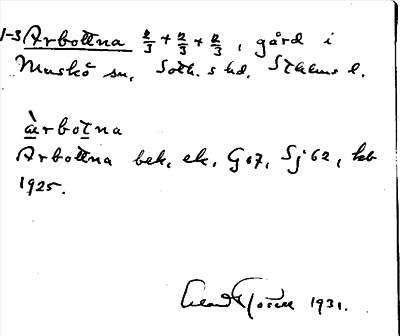 1-3 Arbottna 2/3 + 2/3 + 2/3, gård i
Muskö sn, Soth.s hd, Sthlms l.
àrbotna
Arbottna bek, ek, G67, Sj62, kb
1925.
1931.